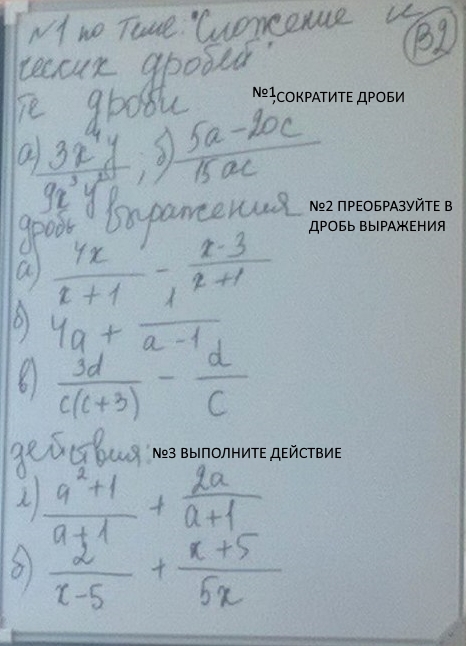 №1 по теме: "Сложение и
В2
ческих дробей"
те дроби №1,СОКРАТИТЕ ДРОБИ
а) 3x⁴y / 9x³y² ; б) 5a – 20c / 15ac
дробь выражения №2 ПРЕОБРАЗУЙТЕ В
ДРОБЬ ВЫРАЖЕНИЯ
а) 4x / x + 1 – x - 3 / x + 1
б) 4a + 1 / a - 1
в) 3d / c(c+3) – d / c
действия: №3 ВЫПОЛНИТЕ ДЕЙСТВИЕ
а) a² + 1 / a + 1 + 2a / a + 1
б) 2 / x - 5 + x + 5 / 5x